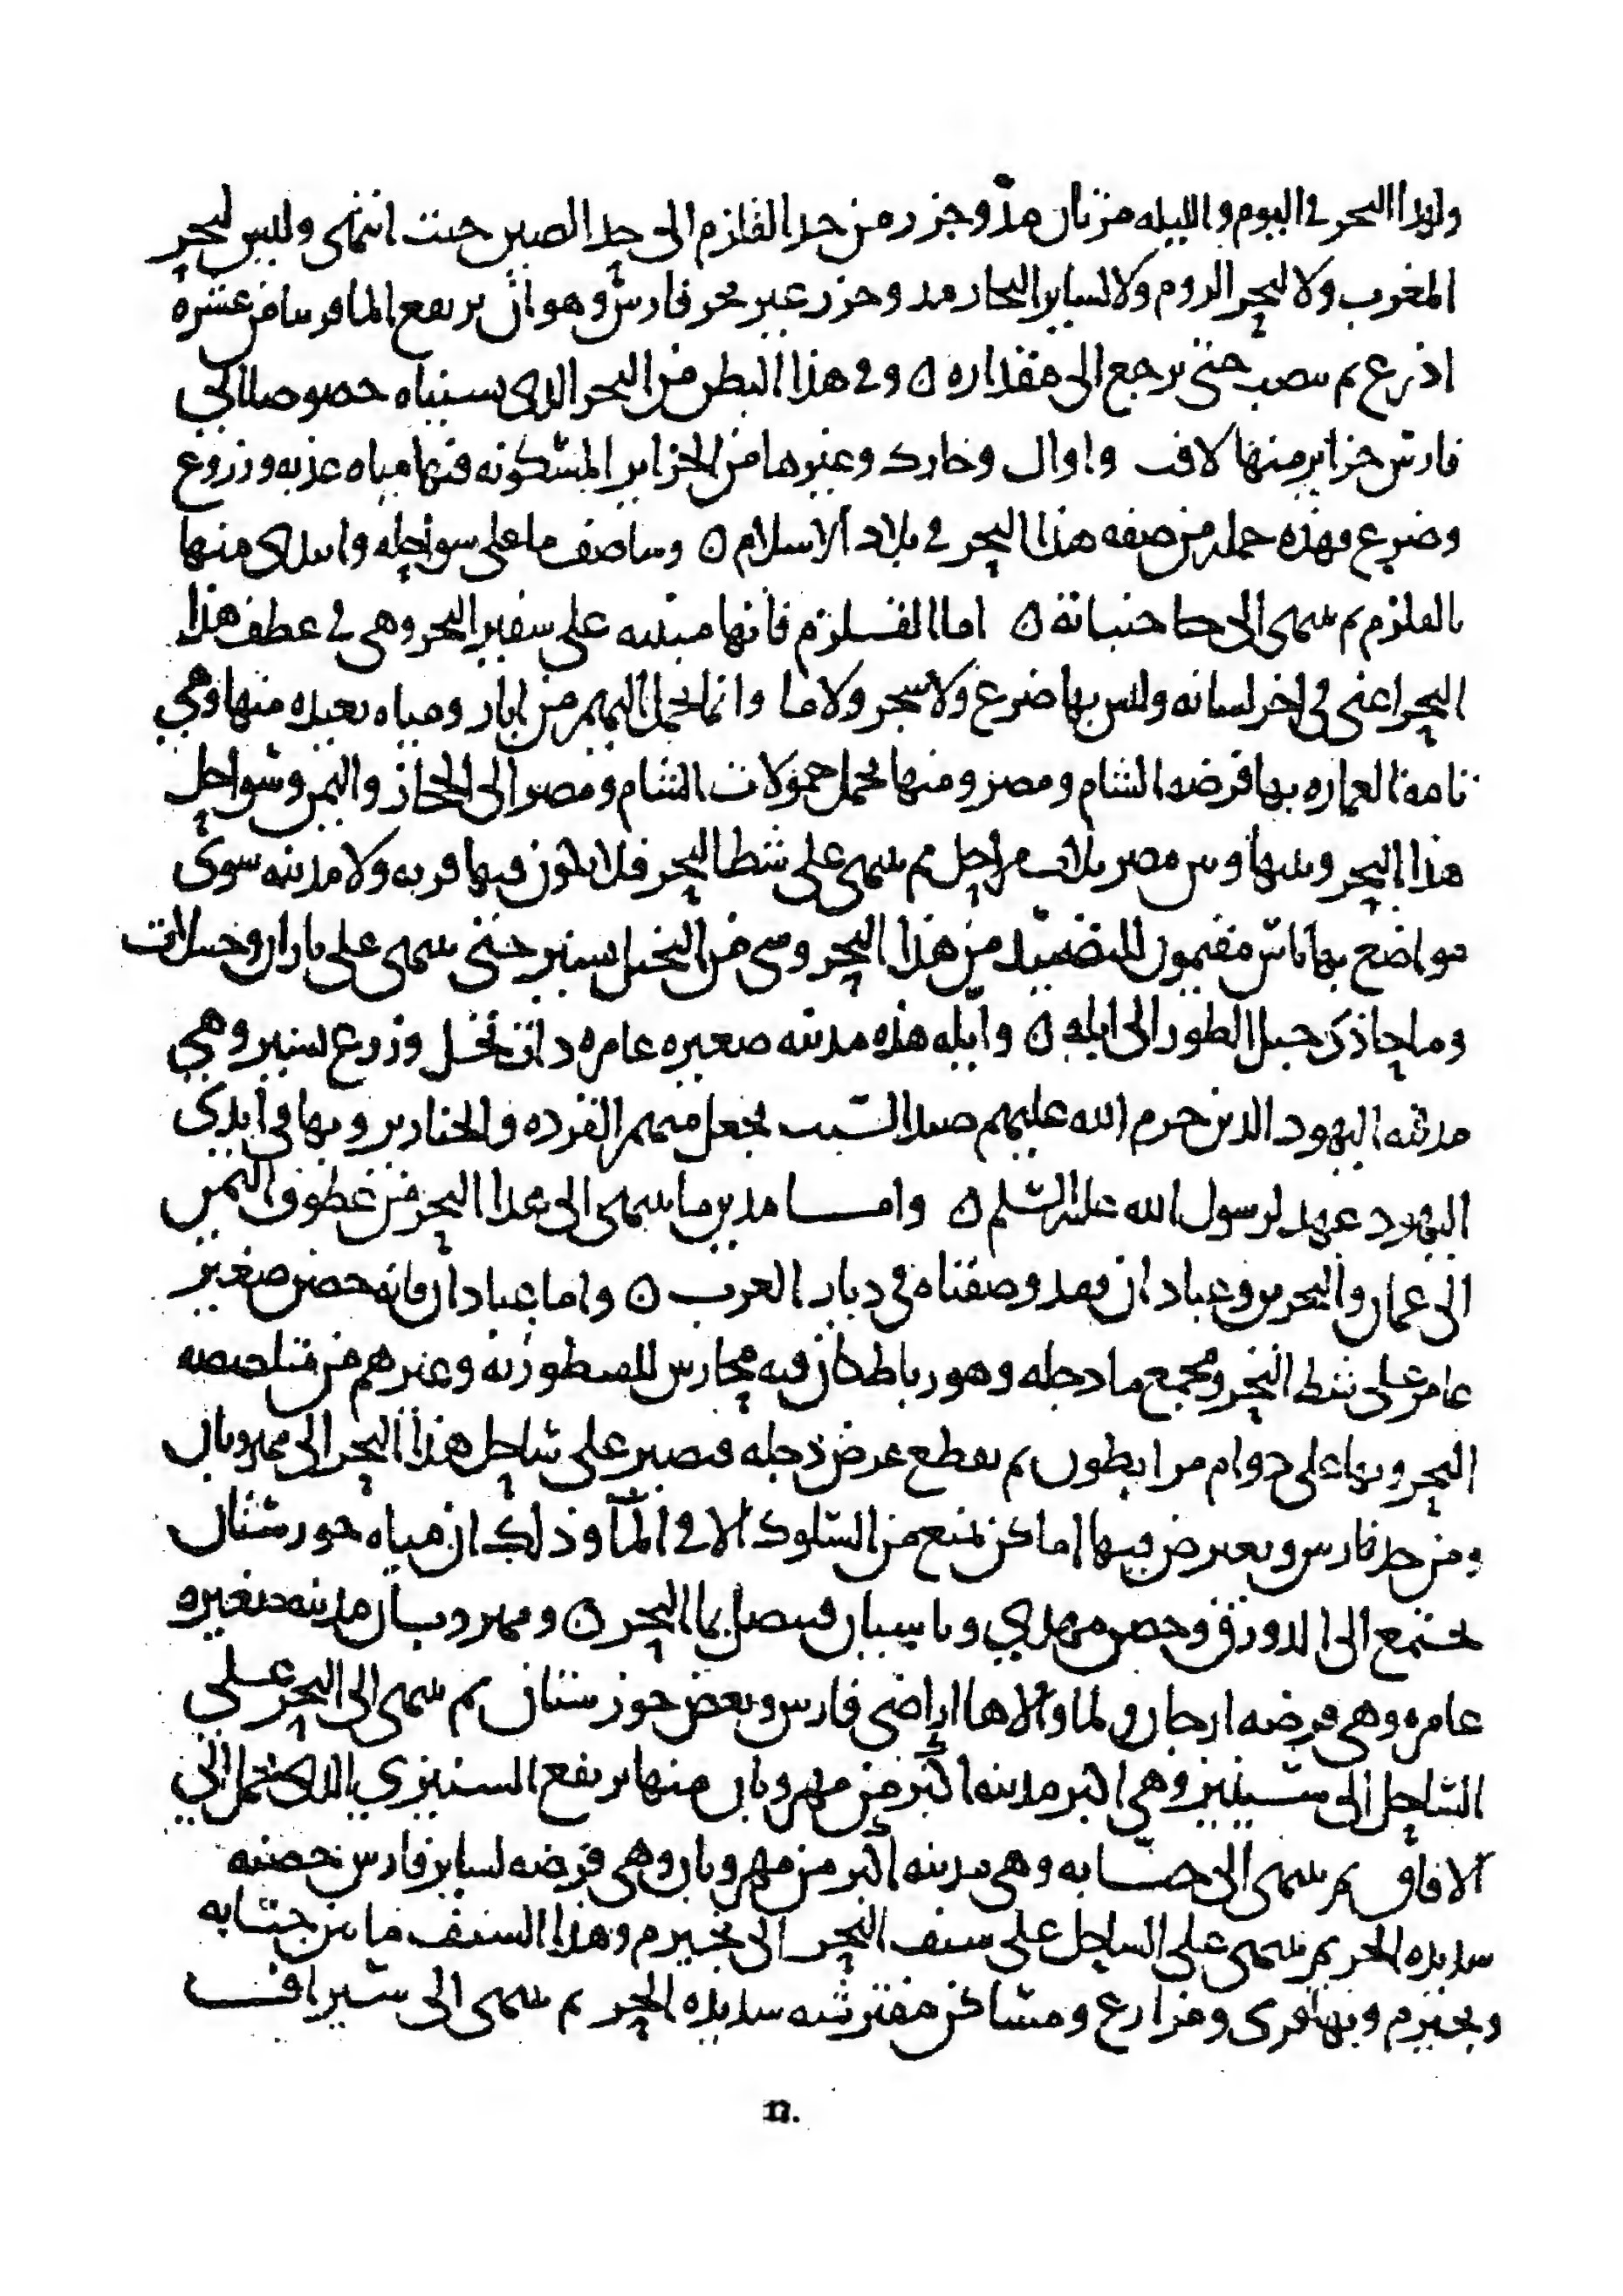 ولهذا البحر في اليوم والليله مرتان مدّ وجزر من حد القلزم الى حد الصين حيث انتهى وليس لبحر
المغرب ولا لبحر الروم ولا لساير البحار مد وجزر غير بحر فارس وهو ان يرتفع الما قريبا من عشره
اذرع ثم ينصب حتى يرجع الى مقداره ن وفي هذا البطن من البحر الذي نسبناه خصوصا الى
فارس جزاير منها لافت واوال وخارك وغيرها من الجزاير المسكونه فيها مياه عذبه وزروع
وضرع فهذه جمله من صفه هذا البحر في بلاد الاسلام ن وساصف ما على سواحله وابتدي منها
بالقلزم ثم ينتهى الى جنبانة ن اما القلزم فانها مدينه على شفير البحر وهي في عطف هذا
البحر اعني في اخر لسانه وليس بها ضرع ولا شجر ولا ما وانما يحمل اليهم من ابار ومياه بعيده منها وهي
تامة العماره بها فرضه الشام ومصر ومنها تحمل حمولات الشام ومصر الى الحجاز واليمن وسواحل
هذا البحر وبينها وبين مصر ثلاث مراحل ثم ينتهى على شط البحر فلا يكون فيها قريه ولا مدينه سوى
مواضع بها ناس مقيمون للتصيد من هذا البحر وشي من النخل يسير حتى ينتهى على تاران وجبيلات
وما حاذى جبل الطور الى ايله ن وايله هذه مدينه صغيره عامره ذات نخل وزرع يسير وهي
مدينه اليهود الذين حرم الله عليهم صيد السبت فجعل منهم القرده والخنازير وبها في ايدى
اليهود عهد لرسول الله عليه السلم ن واما مدين ما ينتهى الى هذا البحر من عطوف اليمن
الى عمان والبحرين وعبادان فقد وصفناه في ديار العرب ن واما عبادان فانه حصن صغير
عامر على شط البحر ومجمع ما دجله وهو رباط كان فيه محارس للصطوريه وغيرهم من متلصصه
البحر وبها على دوام مرابطون ثم يقطع عرض دجله فيصير على ساحل هذا البحر الى مهروبان
ومن حد فارس ويعترض فيها اماكن تمنع من السلوك الا في المآ وذلك ان مياه خوزستان
تجتمع الى الدورق وحصن مهدي وباسيان فيتصل بما البحر ن ومهروبان مدينه صغيره
عامره وهي فرضه ارجان ولما والاها اراضي فارس وبعض خوزستان ثم ينتهى الى البحر على
الساحل الى سينيز وهي اكبر مدينه اكبر من مهروبان منها يرتفع السينيزي الذي يحمل الى
الافاق ثم ينتهى الى جنابه وهي مدينه اكبر من مهروبان وهي فرضه لساير فارس خصبه
شديده الحر ثم ينتهى على الساحل على سيف البحر الى نجيرم وهذا السيف ما بين جنابه
ونجيرم وبها قرى ومزارع ومساكن مفترشه شديده الحر ثم ينتهى الى سيراف